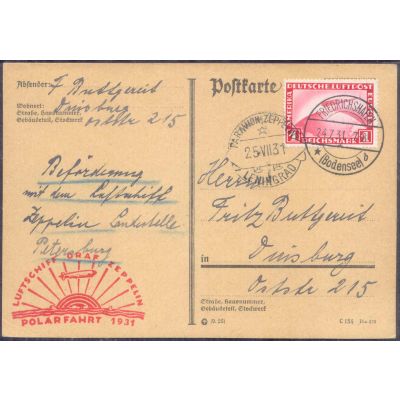 Absender: F Buttgereit
Wohnort: Duisburg
Straße, Hausnummer, Oststr 215
Gebäudeteil, Stockwerk
Beförderung
mit dem Luftschiff
Zeppelin Landestelle
Petersburg
LUFTSCHIFF GRAF ZEPPELIN
POLARFAHRT 1931
Postkarte
DEUTSCHE LUFTPOST
1 REICHSMARK 1
FRIEDRICHSHAFEN
24.7.31.
(Bodensee)
25 VII 31
LENINGRAD
Herrn
Fritz Buttgereit
in Duisburg
Oststr 215
Straße, Hausnummer,
Gebäudeteil, Stockwerk
C 154